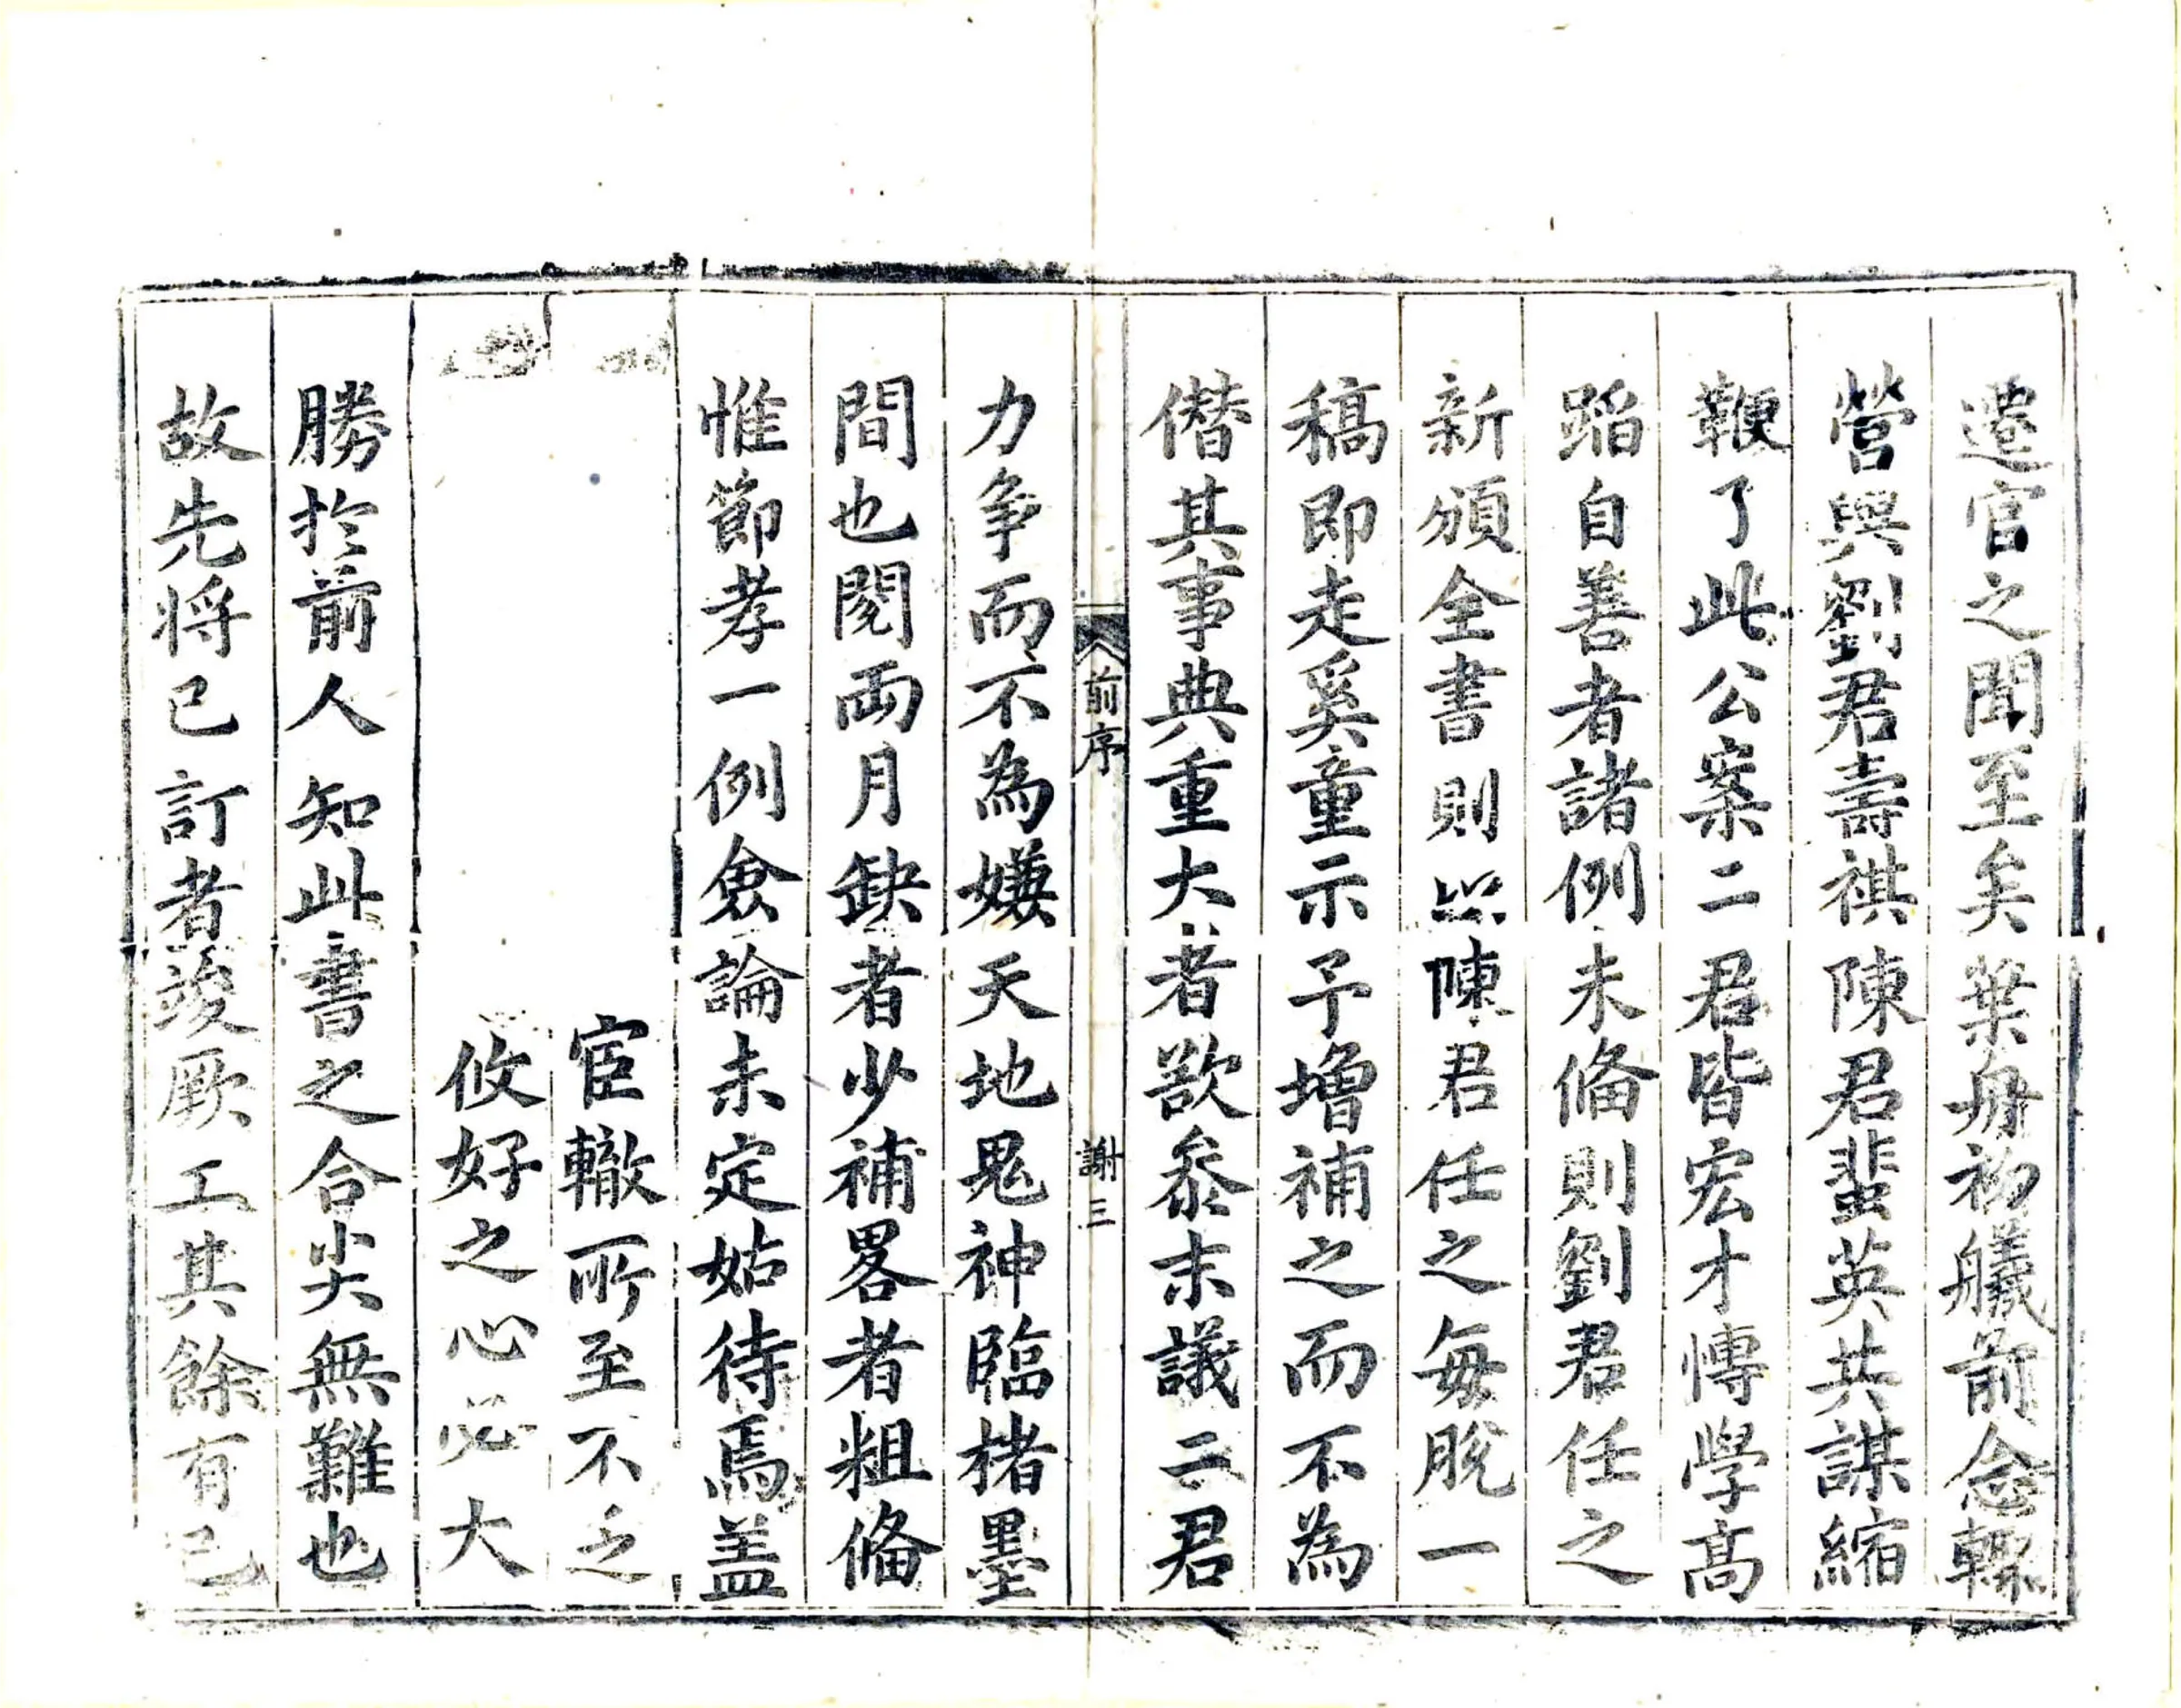 遷官之聞至矣葉舟初艤前念轢
營與劉君壽祺陳君蜚英共謀縮
鞭了此公案二君皆宏才慱學高
蹈自善者諸例未俻則劉君任之
新頒全書則必陳君任之每脫一
稿即走奚童示予增補之而不為
僭其事典重大者欲叅末議二君
前序
謝三
力爭而不為嫌天地鬼神臨楮墨
間也閱兩月缺者少補畧者粗俻
惟節孝一例僉論未定姑待焉盖
宦轍所至不乏
攸好之心必大
勝於前人知此書之合尖無難也
故先将已訂者竣厥工其餘有已